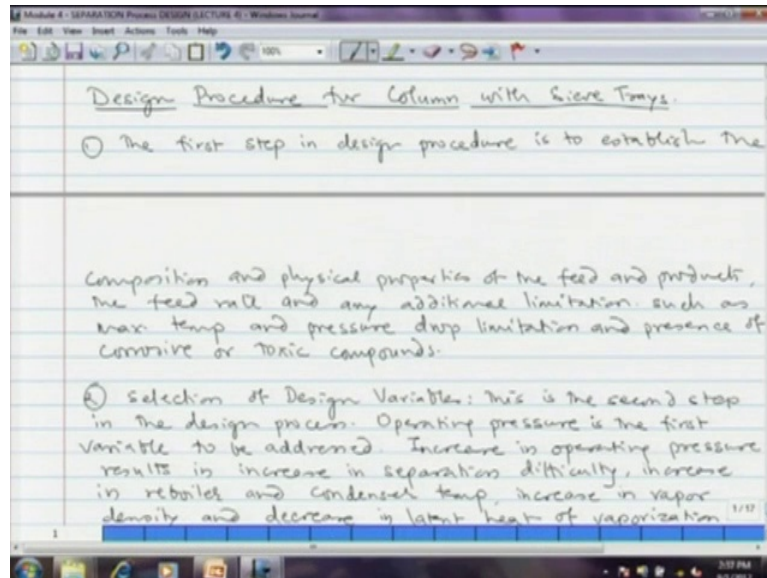 Module 4 - SEPARATION Process DESIGN (LECTURE 4) - Windows Journal
File Edit View Insert Actions Tools Help
100%
Design Procedure for Column with Sieve Trays.
① The first step in design procedure is to establish the
composition and physical properties of the feed and products,
the feed rate and any additional limitation. such as
max. temp and pressure drop limitation and presence of
corrosive or toxic compounds.
② Selection of Design Variables: This is the second step
in the design process. Operating pressure is the first
variable to be addressed. Increase in operating pressure
results in increase in separation difficulty, increase
in reboiler and condenser temp, increase in vapor
density and decrease in latent heat of vaporization
1/17
1
2:57 PM